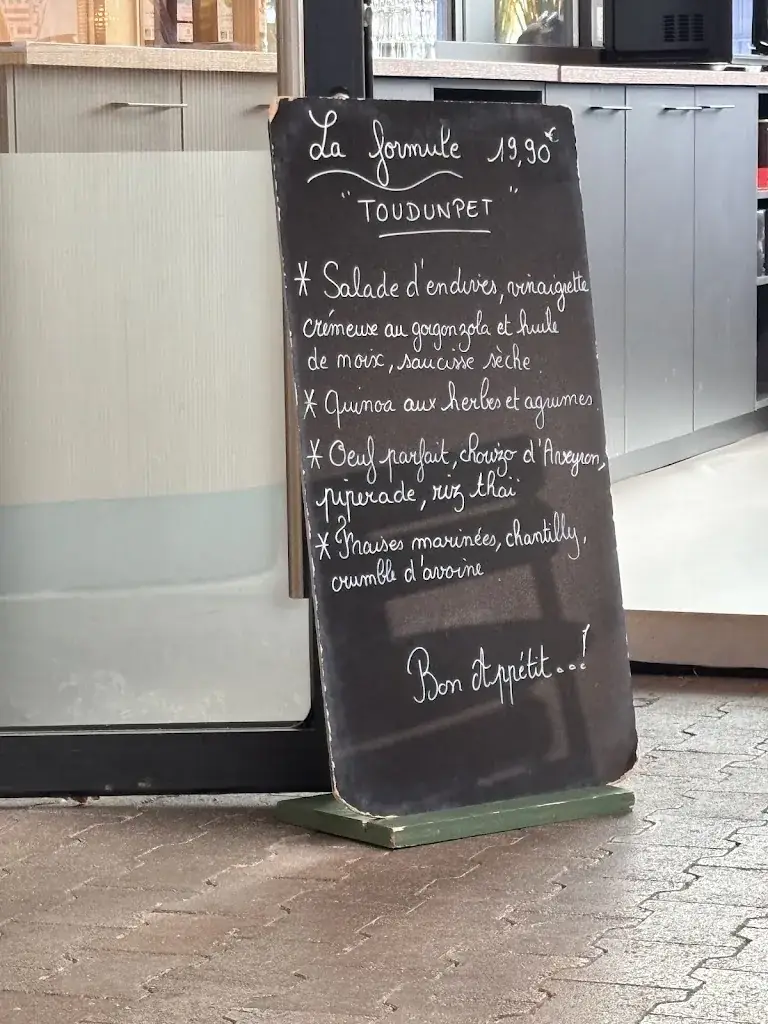 La formule 19,90€
"TOUDUNPET"
* Salade d'endives, vinaigrette
crémeuse au gorgonzola et huile
de noix, saucisse sèche
* Quinoa aux herbes et agrumes.
* Oeuf parfait, chorizo d'Aveyron,
piperade, riz thaï
* Fraises marinées, chantilly,
crumble d'avoine
Bon Appétit...!